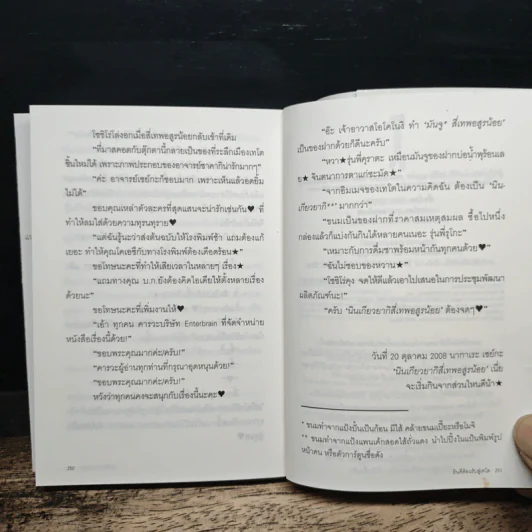 โชชิโร่โล่งอกเมื่อสี่เทพอสูรน้อยกลับเข้าที่เดิม
"ที่มาสคอตกับตุ๊กตานี้กลายเป็นของที่ระลึกเมืองเทโต
ขึ้นใหม่ได้ เพราะภาพประกอบของอาจารย์ซาคากิน่ารักมากๆ"
"ค่ะ อาจารย์เซย์กะก็ชอบมาก เพราะเห็นแล้วอดยิ้ม
ไม่ได้"
ขอบคุณเหล่าตัวละครที่สุดแสนจะน่ารักเช่นกัน♥ ที่
ทำให้ลมใส่ด้วยความทุรนทุราย♥
"แต่ฉันรู้นะว่าส่งต้นฉบับให้โรงพิมพ์ช้า แถมต้องแก้
เยอะ ทำให้คุณโคเอซึกับทางโรงพิมพ์ต้องเดือดร้อน★"
ขอโทษนะคะที่ทำให้เสียเวลาในหลายๆ เรื่อง★
"แถมทางคุณ บ.ก. ยังต้องคิดไอเดียให้ตั้งหลายเรื่อง
ด้วยนะ"
ขอโทษนะคะที่เพิ่มงานให้♥
"เอ้า ทุกคน คารวะบริษัท Enterbrain ที่จัดจำหน่าย
หนังสือเรื่องนี้ด้วย!"
"ขอบพระคุณมากค่ะ/ครับ!"
"คารวะผู้อ่านทุกท่านที่กรุณาอุดหนุนด้วย!"
"ขอบพระคุณมากค่ะ/ครับ!"
หวังว่าทุกคนคงจะสนุกกับเรื่องนี้นะคะ♥
"อ๊ะ เจ้าอาวาสโอโคโนงิ ทำ 'มันจู* สี่เทพอสูรน้อย'
เป็นของฝากด้วยก็ดีนะครับ"
"หวา★รุ่นพี่คุราตะ เหมือนมันจูของฝากบ่อน้ำพุร้อนเล
ย★ จินตนาการตาแก่ชะมัด★"
"จากอิมเมจของเทโตในความคิดฉัน ต้องเป็น 'นิน-
เกียวยากิ**' มากกว่า"
"ขนมเป็นของฝากที่ราคาสมเหตุสมผล ซื้อไปหนึ่ง
กล่องแล้วก็แบ่งกันกินได้หลายคนเนอะ รุ่นพี่รุโกะ"
"เหมาะกับการดื่มชาพร้อมหน้ากันทุกคนด้วย♥"
"ฉันไม่ชอบของหวาน★"
"โชชิโร่คุง จดให้ดีแล้วเอาไปเสนอในการประชุมพัฒนา
ผลิตภัณฑ์นะ!"
"ครับ 'นินเกียวยากิสี่เทพอสูรน้อย' ต้องจดๆ♥"
วันที่ 20 ตุลาคม 2008 นากาเระ เซย์กะ
'นินเกียวยากิสี่เทพอสูรน้อย' เนี่ย
จะเริ่มกินจากส่วนไหนดีน้า★
* ขนมทำจากแป้งปั้นเป็นก้อน มีไส้ คล้ายขนมเปี๊ยะหรือโมจิ
** ขนมทำจากแป้งแพนเค้กสอดไส้ถั่วแดง นำไปปิ้งในแป้นพิมพ์รูป
หน้าคน หรือตัวการ์ตูนชื่อดัง